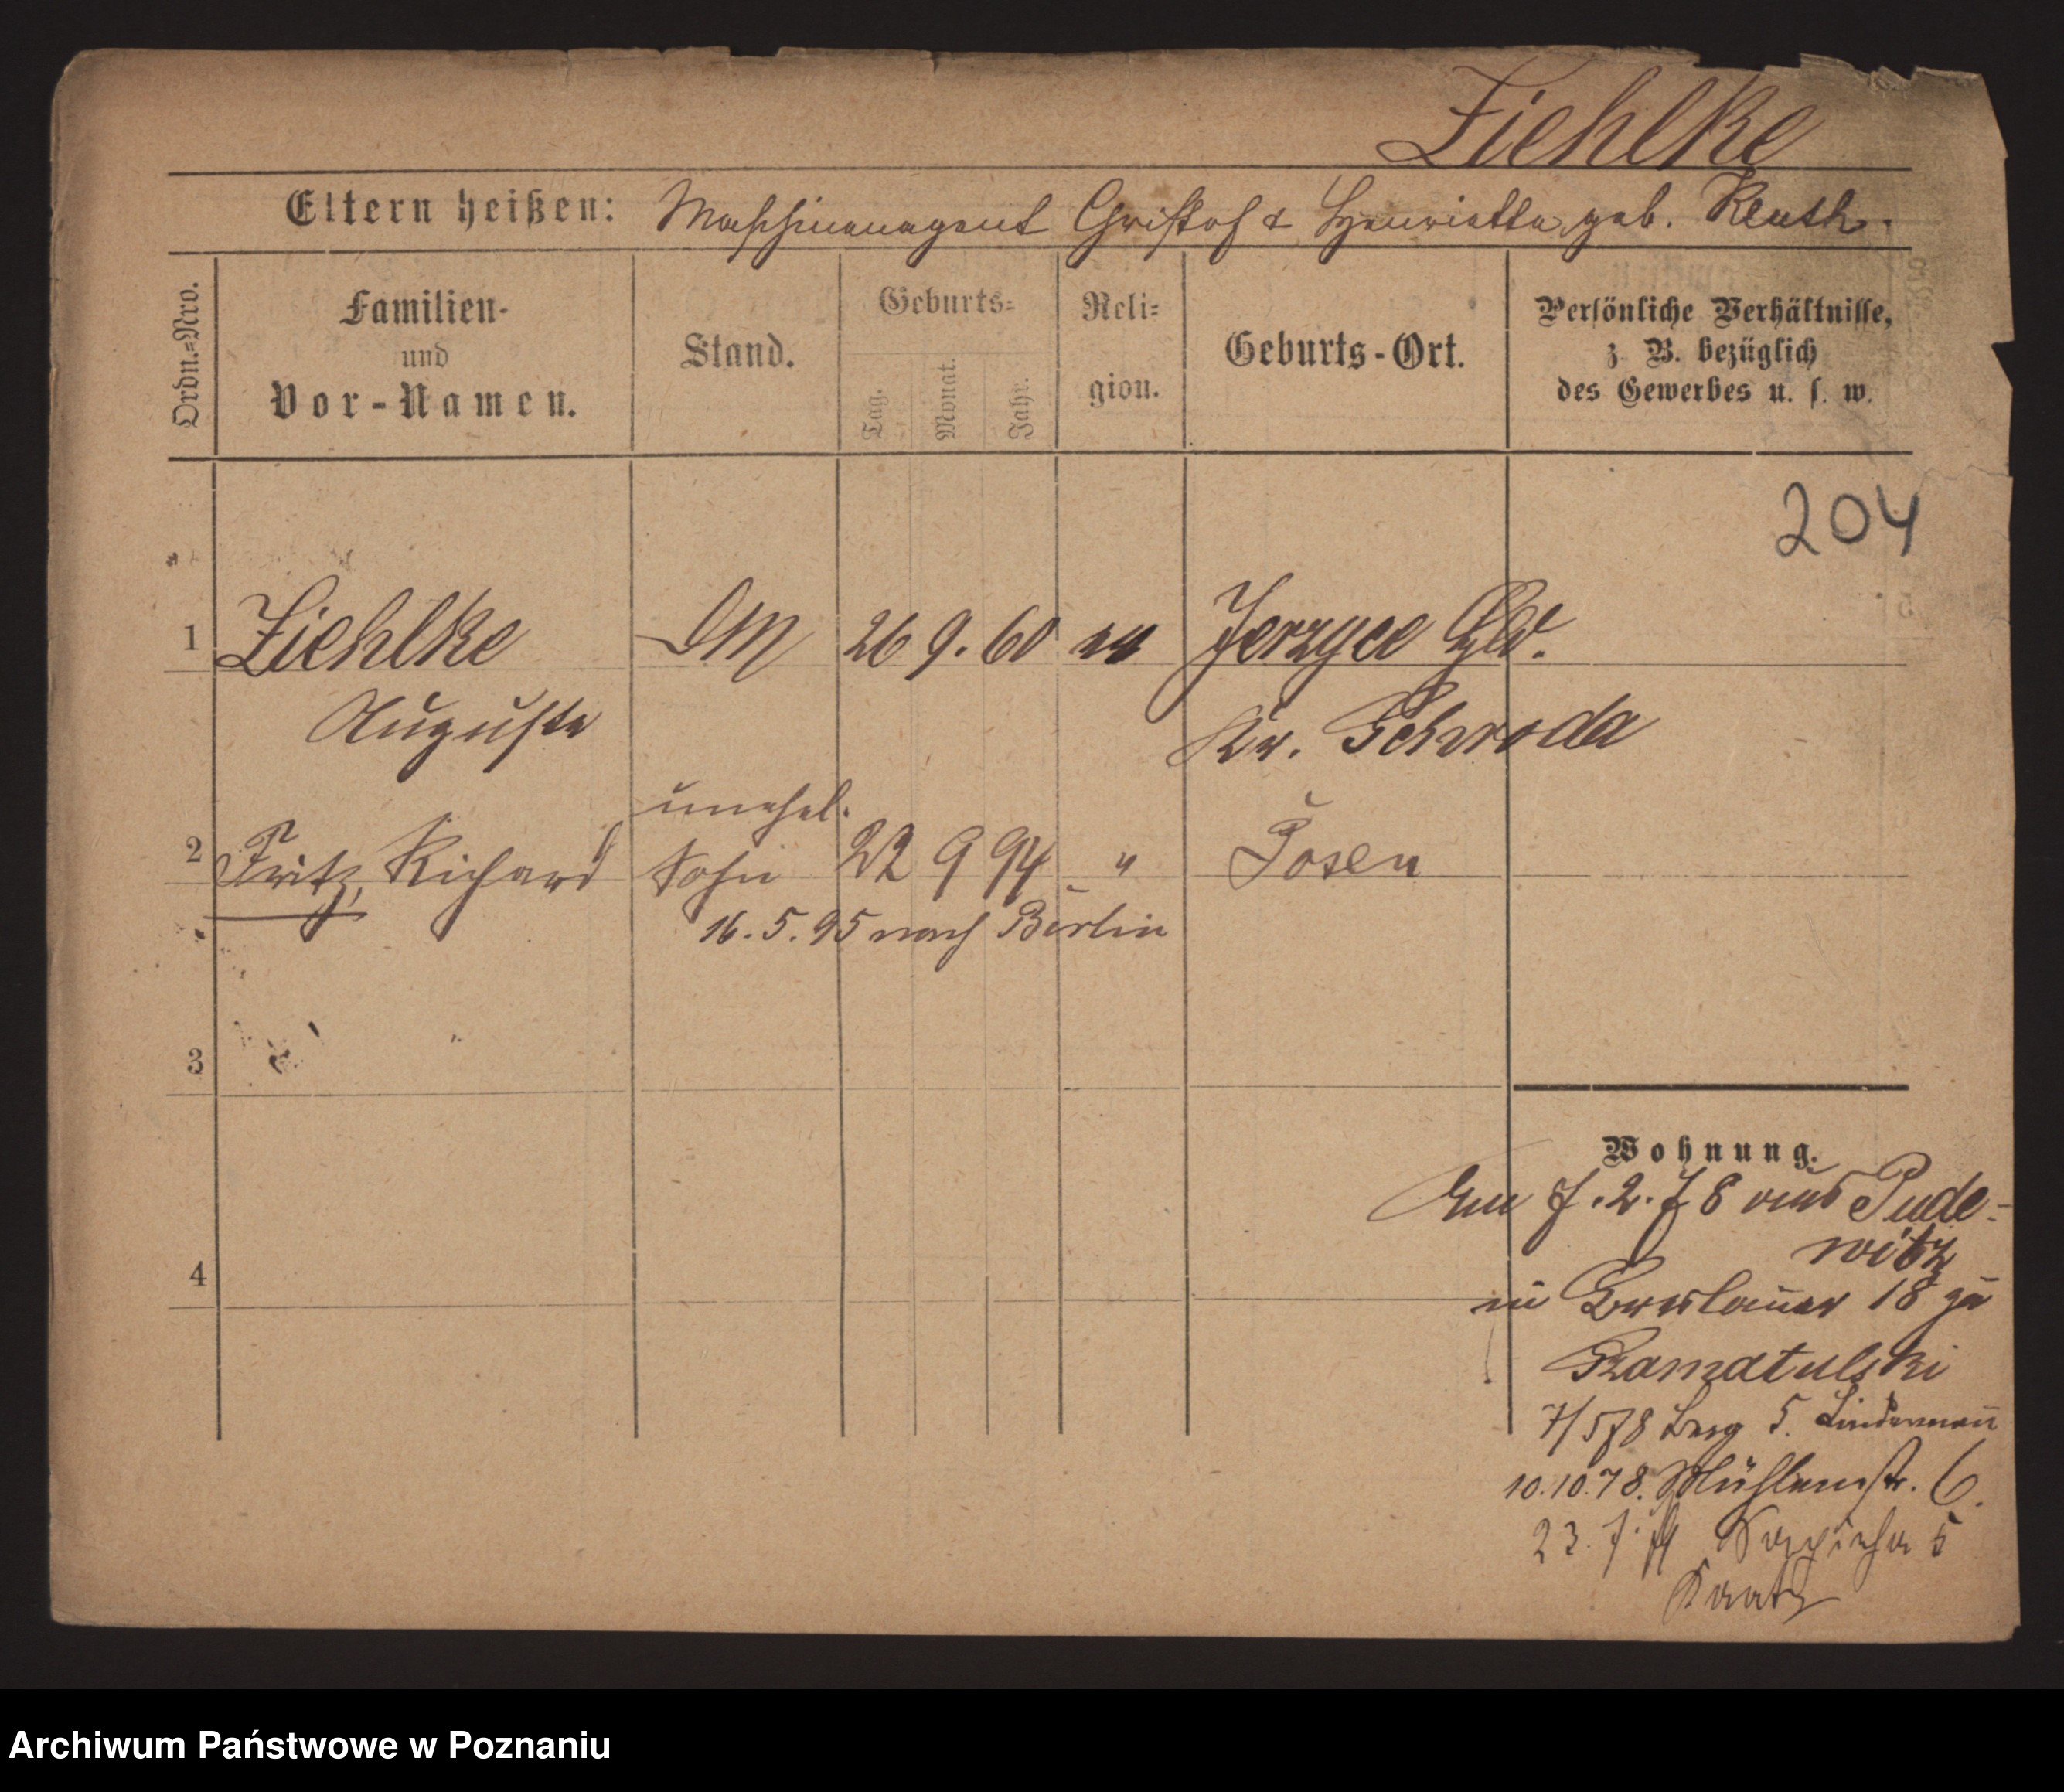 Ziehlke
Eltern heißen: Maschinenagent Christof & Henriette geb. Kluth.
Ordn.=Nro.
Familien- und Vor-Namen.
Stand.
Geburts=
Tag. Monat. Jahr.
Reli= gion.
Geburts-Ort.
Persönliche Verhältnisse,
z. B. bezüglich
des Gewerbes u. s. w.
204
1 Ziehlke DM 26 9. 60 ev Jerzyce Gld.
Auguste Kr. Schroda
unehel.
2 Fritz, Richard Sohn 22 9 94 " Posen
16. 5. 95 nach Berlin
3
4
Wohnung.
7.2.78 aus Pude-
witz
in Breslauer 18 zu
7/578 Berg 5. Lindemann
10.10.78. Mühlenstr. 6.
23. 7. Sapieha 5
Kraatz
Archiwum Państwowe w Poznaniu